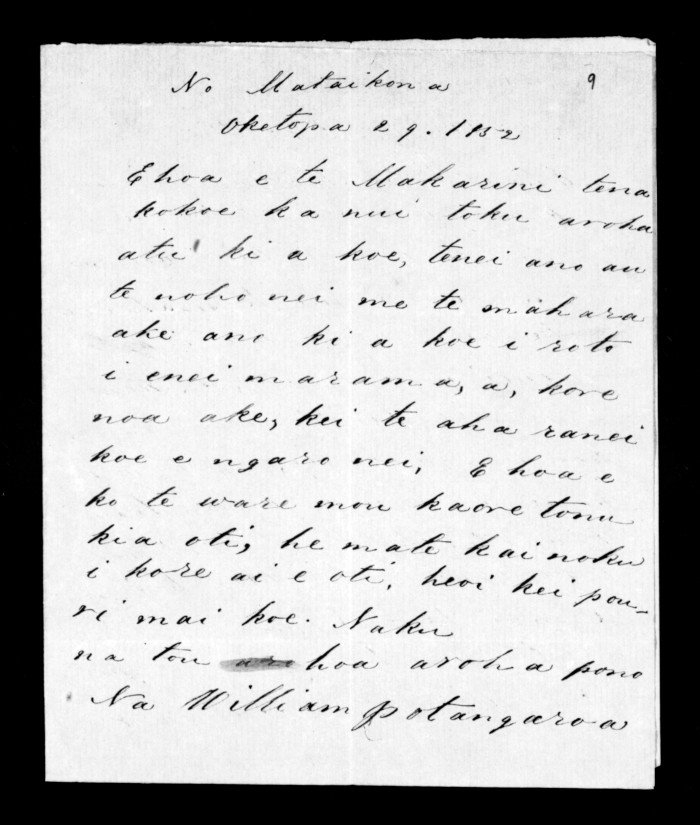 9
No Mataikona
Oketopa 29. 1852
E hoa e te Makarini tena
kokoe ka nui toku aroha
atu ki a koe, tenei ano au
te noho nei me te mahara
ake ano ki a koe i roto
i enei marama, a, kore
noa ake, kei te aha ranei
koe e ngaro nei, E hoa e
ko te ware mou kaore tonu
kia oti, he mate kai noku
i kore ai e oti, heoi kei pou-
ri mai koe. Naku
na tou hoa aroha pono
Na William Potangaroa